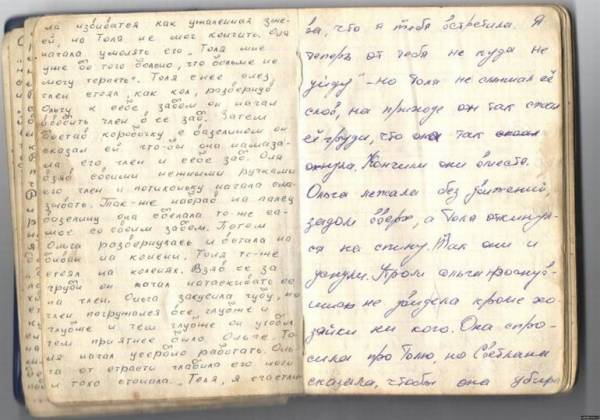 ла извиватся как ужаленная зме-
ей, но Толя не мог кончить. Оля
начала умолять его „Толя мне
уже до того больно, что больше не
могу терпеть". Толя снее слез,
член стоял, как кол, развернув
Ольгу к себе задом он начал
вводить член в её зад. Затем
достав коробочку с вазелином он
сказал ей что-бы она намаза-
ла его член и себе зад. Оля
взяв своими нежными ручками
его член и потихоньку начала сма-
зывать. Так-же набрав на палец
вазелину она сделала то-же са-
мое со своим задом. Потом
Ольга развернулась и встала на
диван на колени. Толя то-же
стоял на коленях. Взяв её за
груди он начал натаскивать её
на член. Ольга закусила губу, но
член погружался все глубже и
глубже и чем глубже он уходил
тем приятнее было Ольге. То-
ля начал усердно работать. Оль-
га от страсти слабила его ноги
и тихо стонала. „Толя, я счастли
ва, что я тебя встретила. Я
теперь от тебя не куда не
уйду" - но Толя не слышал её
слов, на приходе он так сжал
ей груди, что она так
охнула. Кончили они вместе.
Ольга лежала без движений,
задом вверх, а Толя откинул-
ся на спину. Так они и
уснули. Утром Ольга проснув-
шись не увидела кроме хо-
зяйки ни кого. Она спро-
сила про Толю, но Светлана
сказала, чтобы она убира